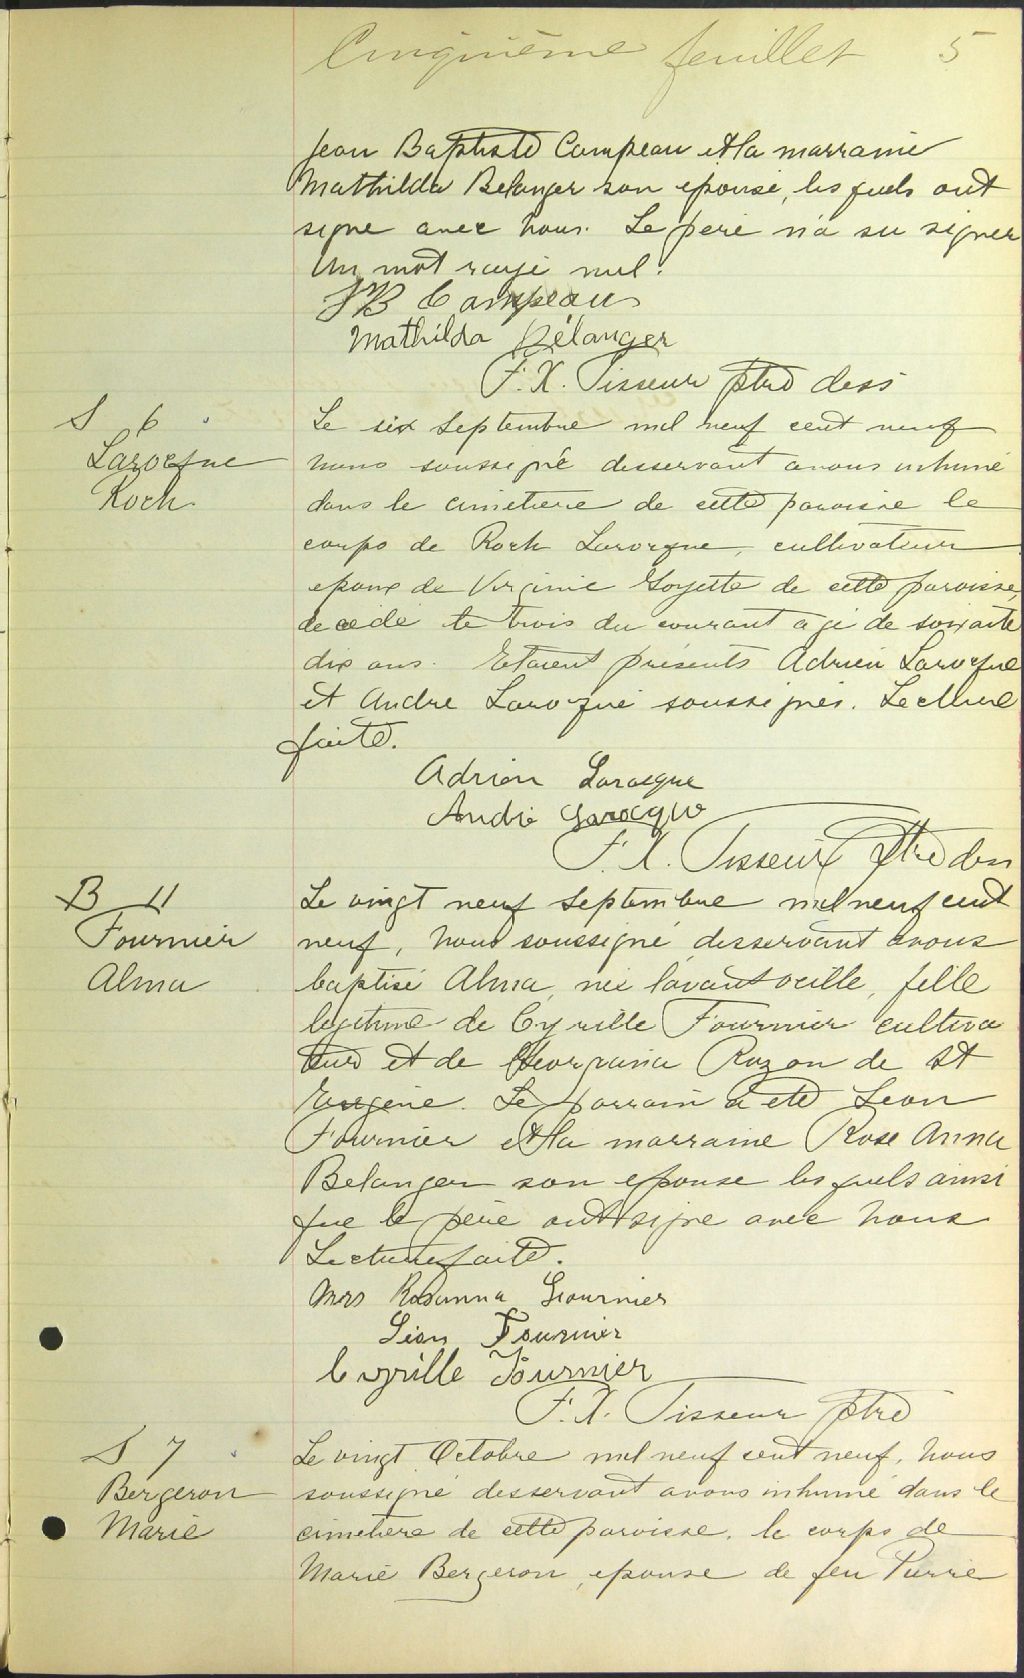 Cinquième feuillet 5
Jean Baptiste Campeau et la marraine
Mathilda Belanger son epouse, les quels ont
signe avec nous. Le pere n'a su signer
Un mot rayé nul.
JB Campeau
Mathilda Bélanger
F. X. Tisseur ptre dess
S 6
Larocque
Roch
Le six Septembre mil neuf cent neuf
nous soussigné desservant avons inhumé
dans le cimetiere de cette paroisse le
corps de Roch Larocque, cultivateur
epoux de Virginie Goyette de cette paroisse,
decedé le trois du courant agé de soixante
dix ans. Etaient présents Adrien Larocque
et André Larocque soussignés. Lecture
faite.
Adrien Larocque
André Larocque
F. X. Tisseur Ptre dess
B 11
Fournier
Alma
Le vingt neuf Septembre mil neuf cent
neuf, nous soussigné desservant avons
baptisé Alma, née l'avant veille, fille
legitime de Cyrille Fournier cultiva
teur et de Georgiana Rozon de St
Eugene. Le parrain a ete Leon
Fournier et la marraine Rose Anna
Belanger son epouse les quels ainsi
que le père ont signe avec nous
Lecture faite.
Mrs Rosanna Fournier
Léon Fournier
Cyrille Fournier
F. X. Tisseur ptre
S 7
Bergeron
Marie
Le vingt Octobre mil neuf cent neuf, nous
soussigné desservant avons inhumé dans le
cimetière de cette paroisse, le corps de
Marie Bergeron, epouse de feu Pierre